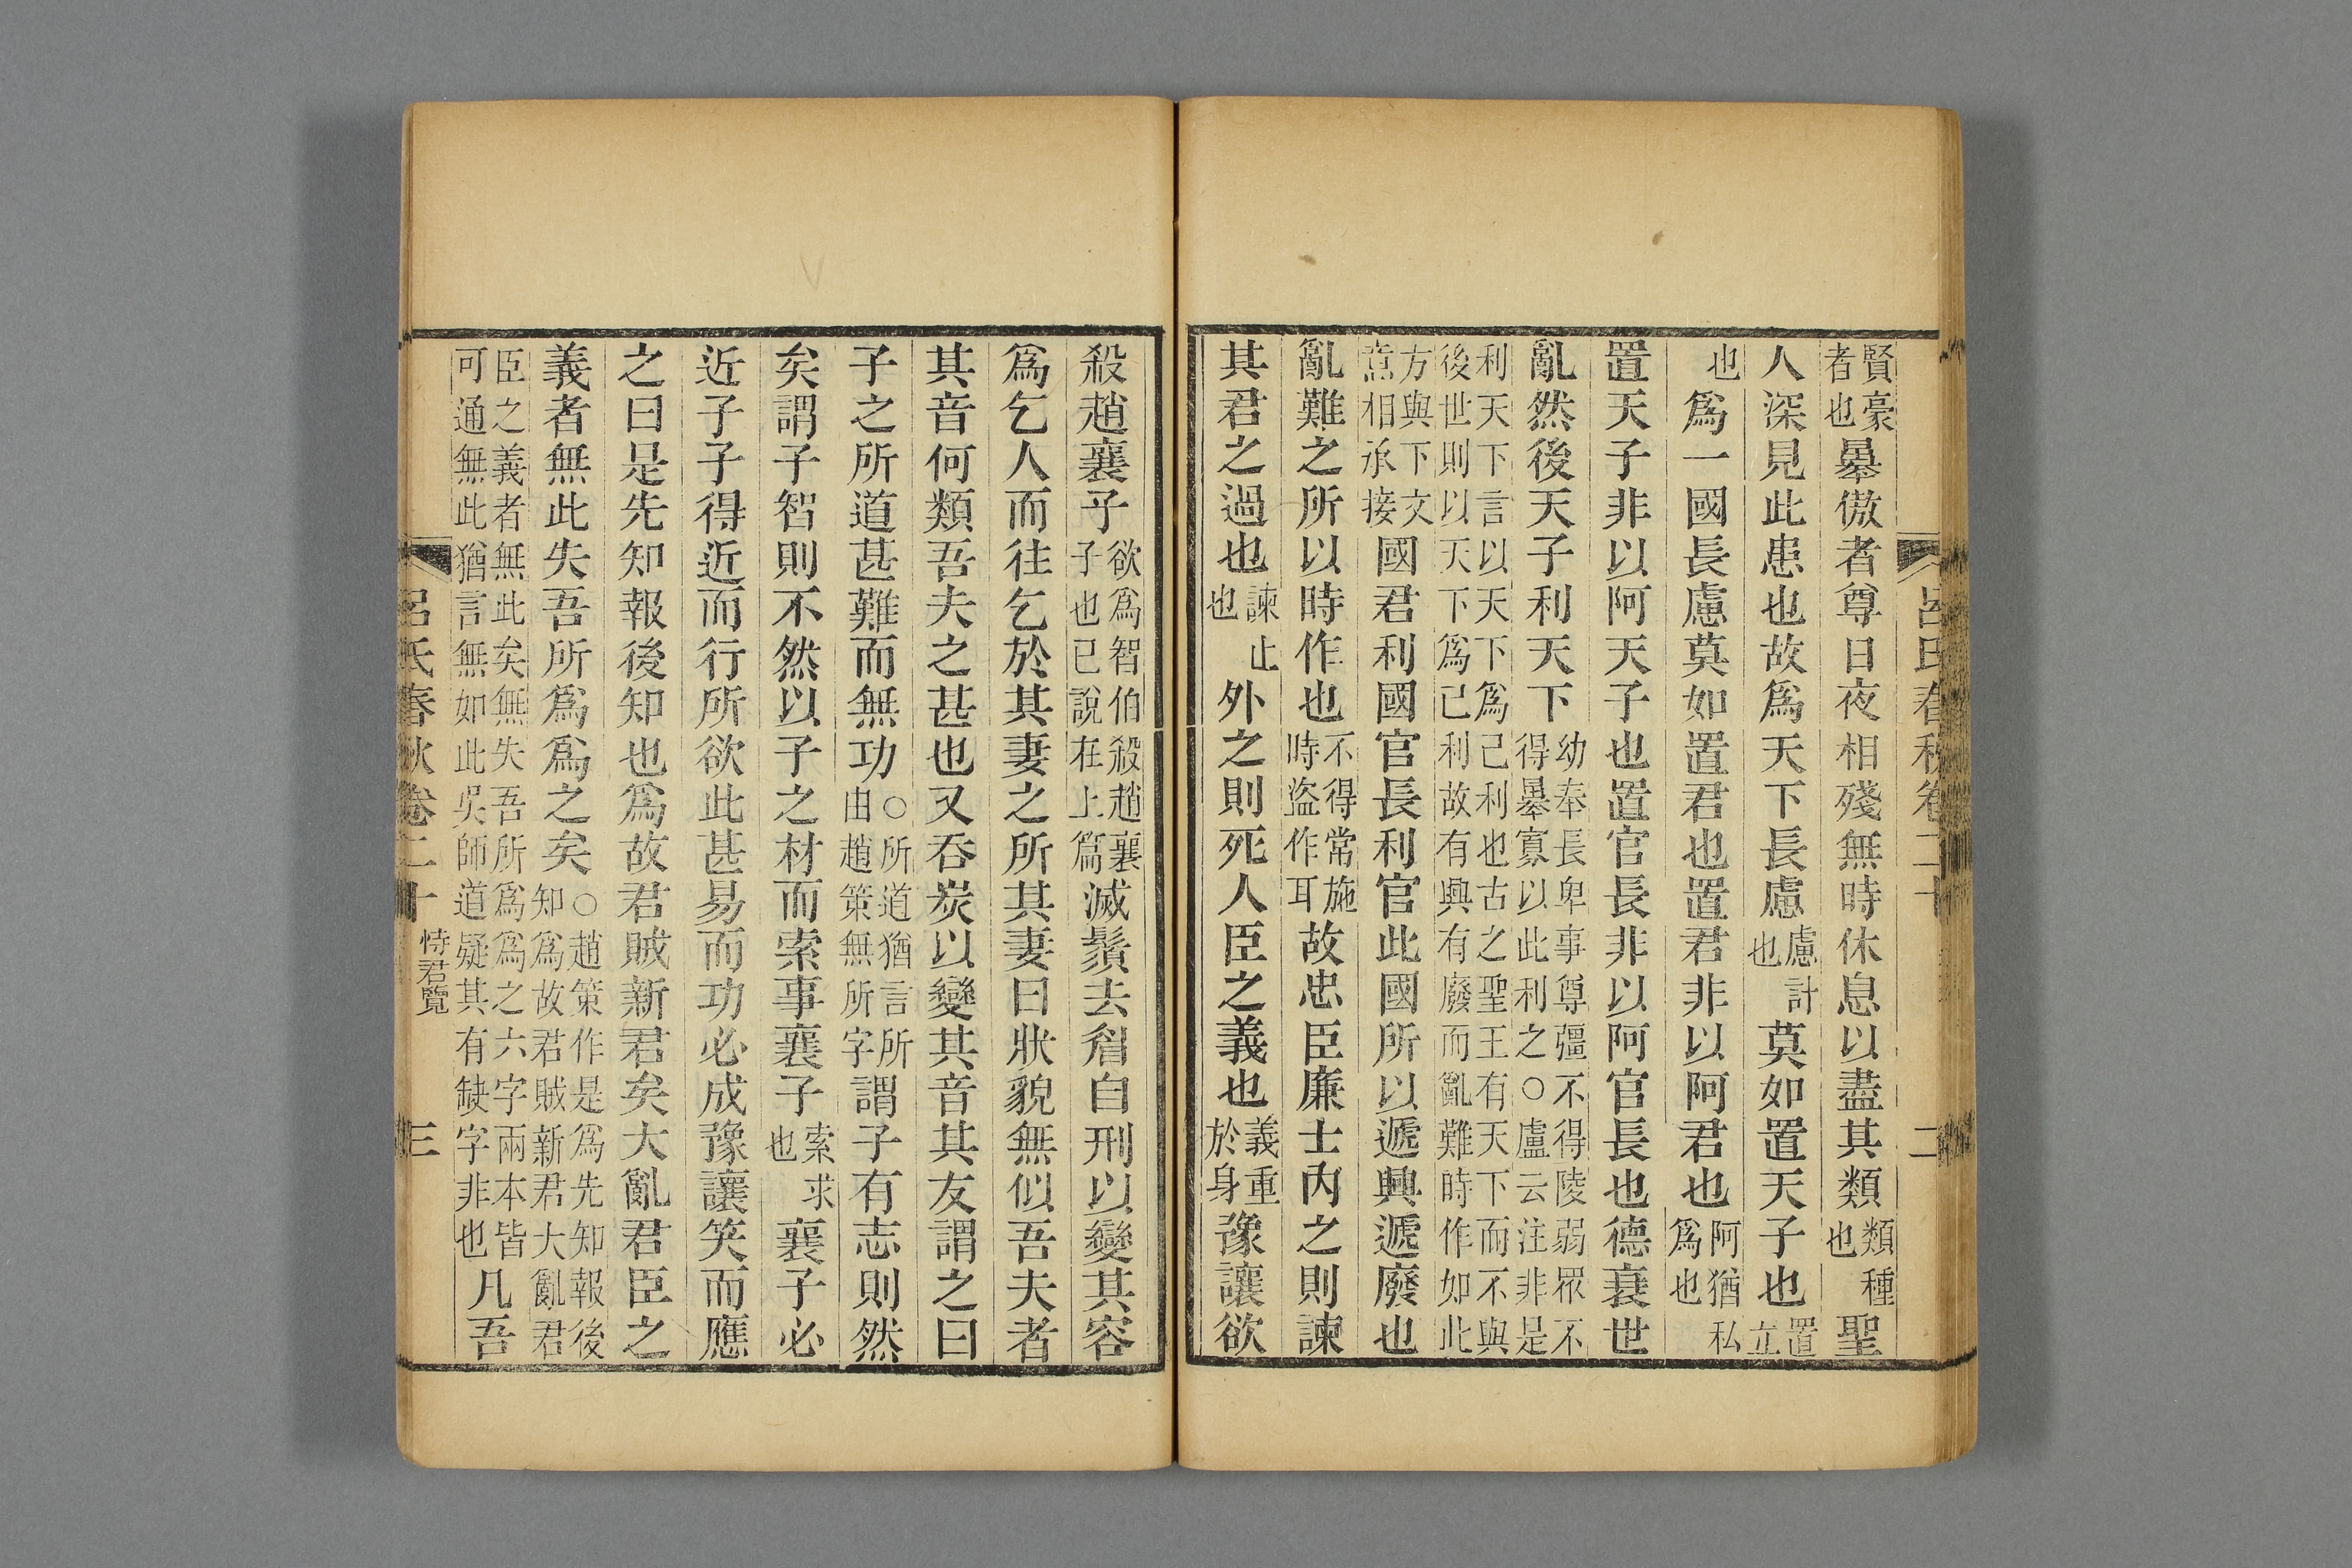 呂氏春秋卷二十 二
賢豪者也暴傲者尊日夜相殘無時休息以盡其類類種也聖
人深見此患也故爲天下長慮慮計也莫如置天子也置立
也爲一國長慮莫如置君也置君非以阿君也阿猶私爲也
置天子非以阿天子也置官長非以阿官長也德衰世
亂然後天子利天下幼奉長卑事尊彊不得陵弱眾不得暴寡以此利之○盧云注非是
利天下言以天下爲己利也古之聖王有天下而不與後世則以天下爲己利故有興有廢而亂難時作如此
方與下文意相承接國君利國官長利官此國所以遞興遞廢也
亂難之所以時作也不得常施時盜作耳故忠臣廉士內之則諫
其君之過也諫止也外之則死人臣之義也義重於身豫讓欲
殺趙襄子欲爲智伯殺趙襄子也已說在上篇滅鬚去眉自刑以變其容
爲乞人而往乞於其妻之所其妻曰狀貌無似吾夫者
其音何類吾夫之甚也又吞炭以變其音其友謂之曰
子之所道甚難而無功○所道猶言所由趙策無所字謂子有志則然
矣謂子智則不然以子之材而索事襄子索求也襄子必
近子子得近而行所欲此甚易而功必成豫讓笑而應
之曰是先知報後知也爲故君賊新君矣大亂君臣之
義者無此失吾所爲爲之矣○趙策作是爲先知報後知爲故君賊新君大亂君
臣之義者無此矣無失吾所爲爲之六字兩本皆可通無此猶言無如此吳師道疑其有缺字非也凡吾
呂氏春秋卷二十 恃君覽 三